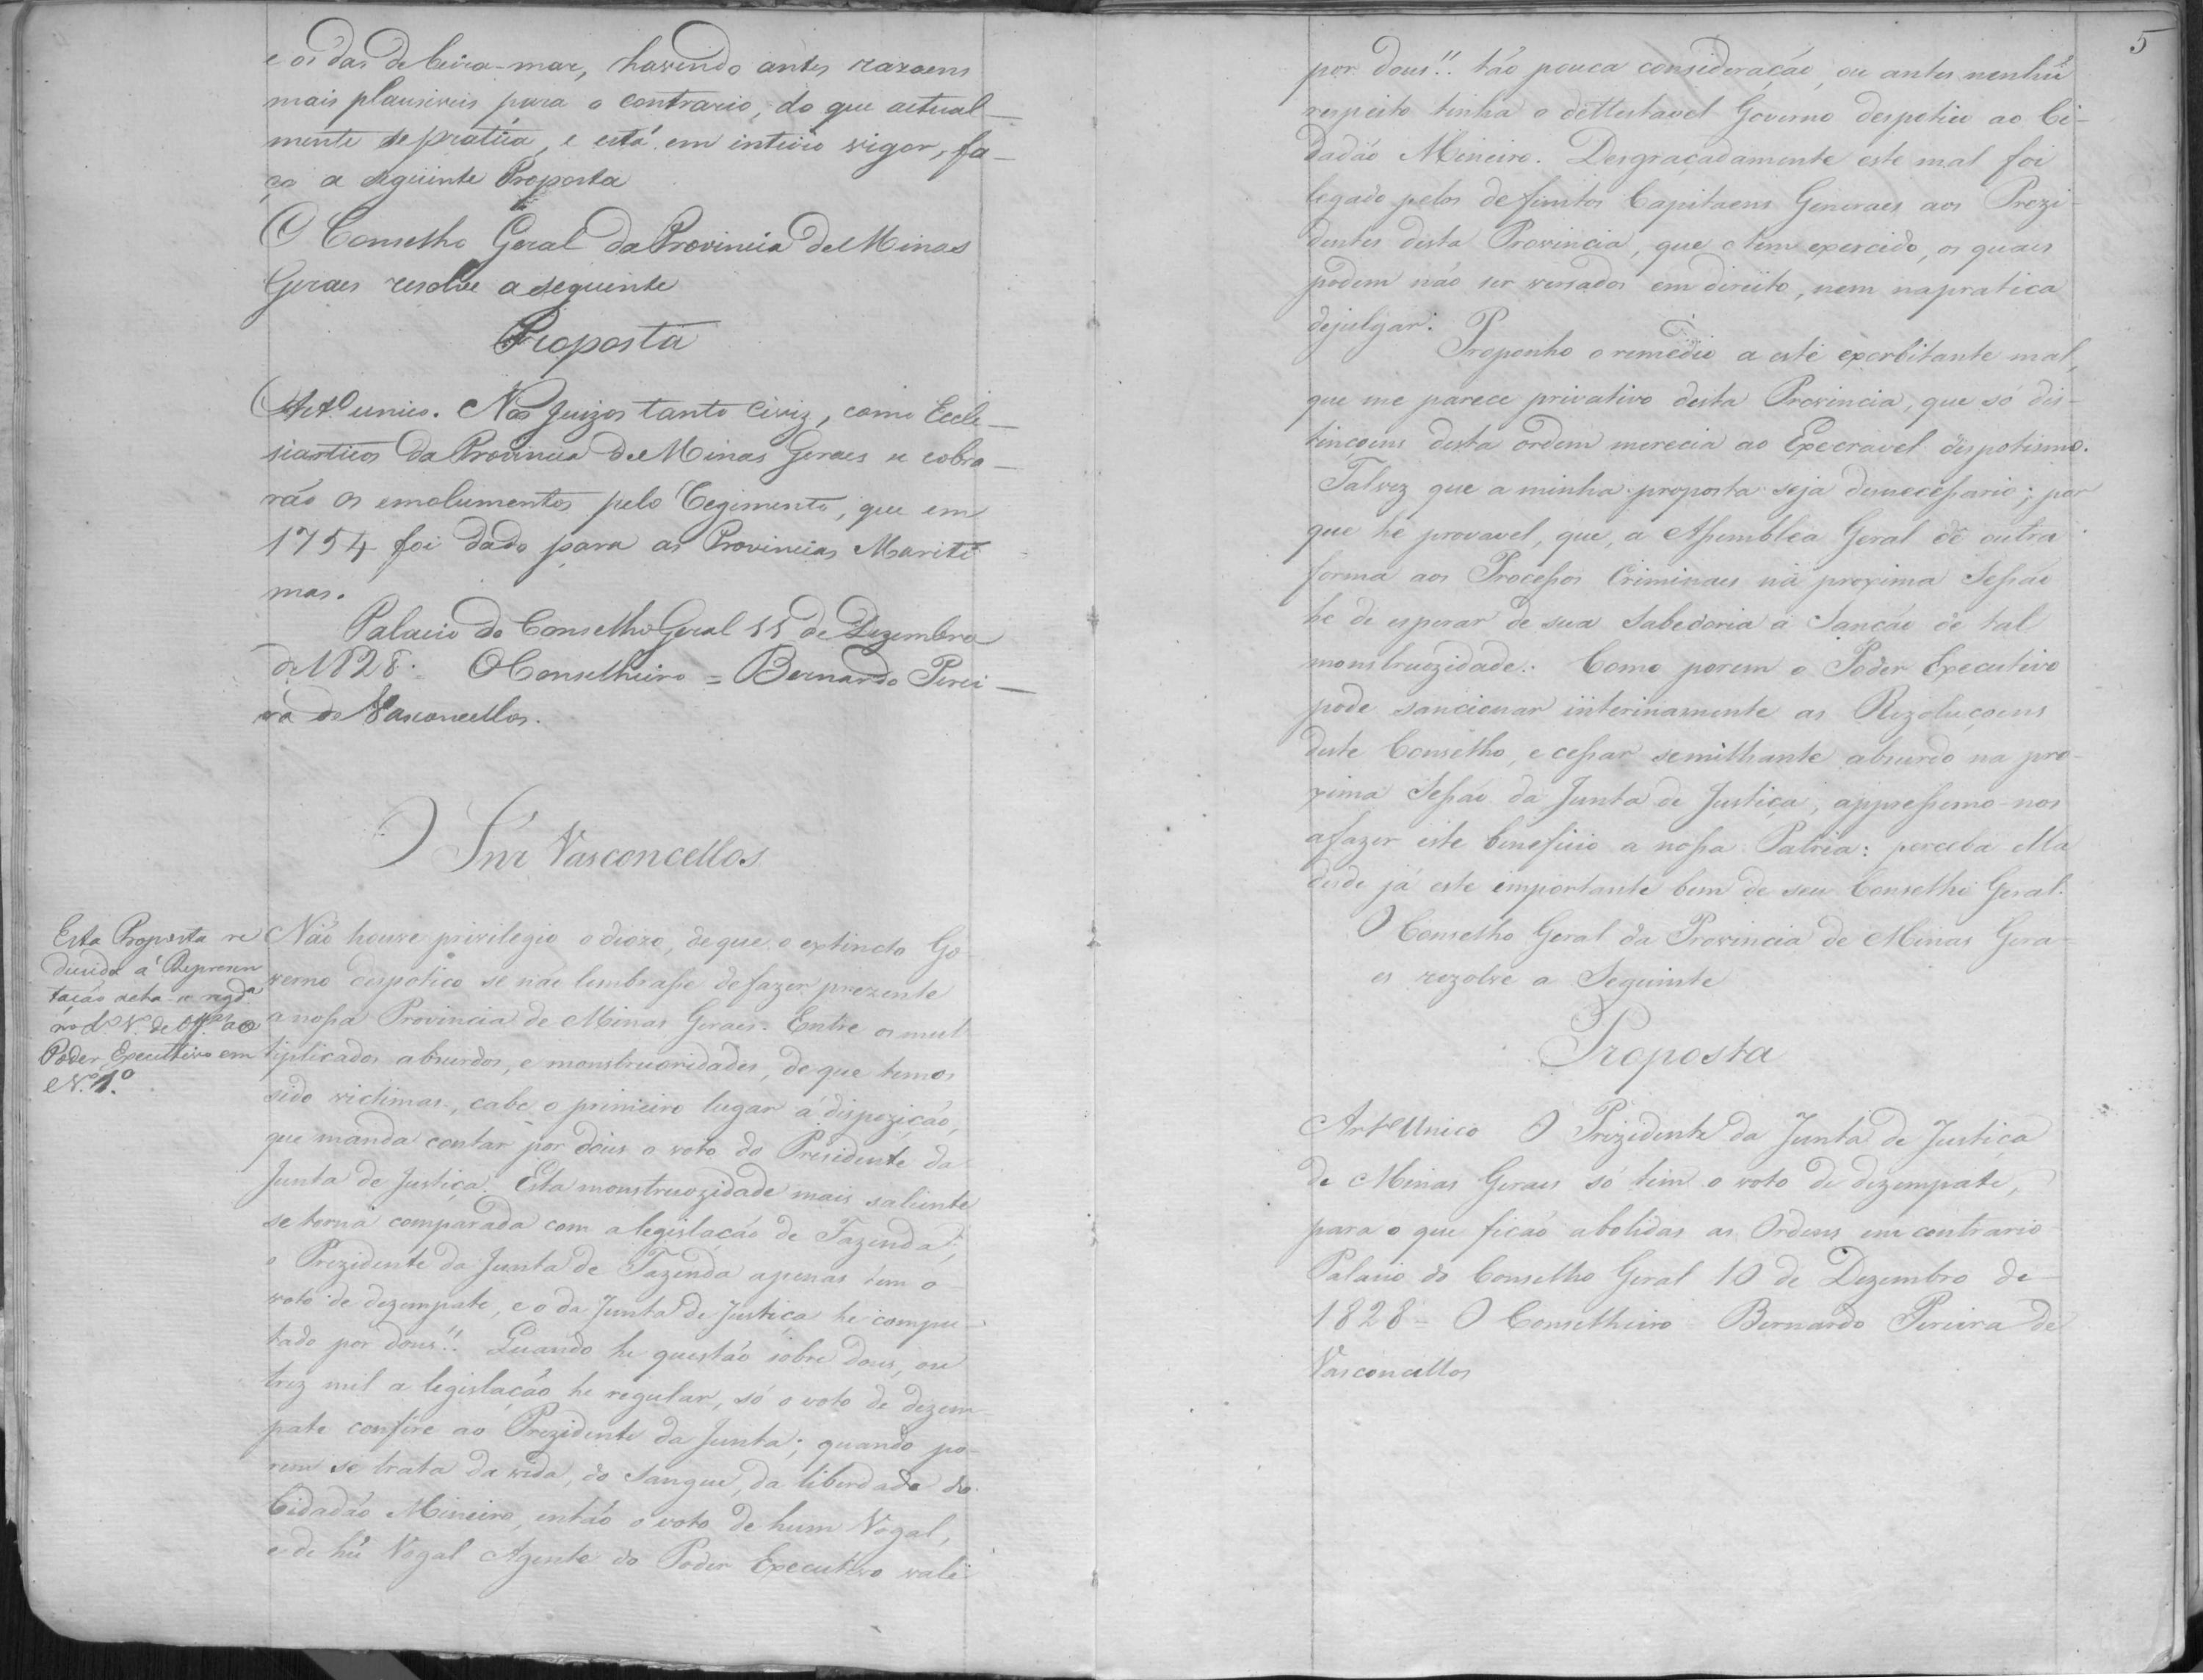 e os das de beira-mar, havendo antes razoens
mais plausiveis para o contrario, do que actual-
mente se pratica, e está em inteiro vigor, fa-
ço a seguinte Proposta
O Conselho Geral da Provincia de Minas
Geraes resolve a seguinte
Proposta
Artº unico. Nos Juizos tanto Civiz, como Eccle-
siasticos da Provincia de Minas Geraes se cobra-
rão os emolumentos pelo Regimento, que em
1754 foi dado para as Provincias Mariti
mas.
Palacio do Conselho Geral 11 de Dezembro
de 1828. O Conselheiro = Bernardo Perei-
ra de Vasconcellos.
O Snr Vasconcellos
Esta Proposta re
duzida á Represen
tação acha-se regda
no Lº de Offos ao
Poder Executivo em
Nº 1º
Não houve privilegio odiozo, de que o extincto Go-
verno despotico se não lembrasse de fazer prezente
a nossa Provincia de Minas Geraes. Entre os mul
tiplicados absurdos, e monstruozidades, de que temos
sido victimas, cabe o primeiro lugar á dispozição,
que manda contar por dous o voto do Presidente da
Junta de Justiça. Esta monstruozidade mais saliente
se torna comparada com a legislação de Fazenda;
o Prezidente da Junta de Fazenda apenas tem o
voto de dezempate, e o da Junta de Justiça he compu-
tado por dous!! Quando he questão sobre dous, ou
trez mil a legislação he regular, só o voto de dezem
pate confire ao Prezidente da Junta; quando po-
rem se trata da vida, do sangue, da liberdade do
Cidadão Mineiro, então o voto de hum Vogal,
e de hũ Vogal Agente do Poder Executivo vale
5
por dous!! tão pouca consideração, ou antes nenhũ
respeito tinha o dettestavel Governo despotico ao Ci-
dadão Mineiro. Desgraçadamente este mal foi
legado pelos defuntos Capitaens Generaes aos Prezi-
dentes desta Provincia, que o tem exercido, os quaes
podem não ser versados em direito, nem na pratica
de julgar. Proponho o remedio a este exorbitante mal,
que me parece privativo desta Provincia, que só dis-
tinçoens desta ordem merecia ao Execravel despotismo.
Talvez que a minha proposta seja desnecessaria; por
que he provavel, que, a Assemblea Geral dê outra
forma aos Processos Criminaes na proxima Sessão
he de esperar de sua Sabedoria a Sancão de tal
monstruozidade. Como porem o Poder Executivo
pode sancionar interinamente as Rezoluçoens
deste Conselho, e cessar semilhante absurdo na pro-
xima Sessão da Junta de Justiça, appressemo-nos
a fazer este beneficio a nossa Patria: perceba ella
desde já este importante bem de seu Conselho Geral.
O Conselho Geral da Provincia de Minas Gera-
es rezolve a Seguinte
Proposta
Arte Unico O Prezidente da Junta de Justiça
de Minas Geraes só tem o voto de dezempate,
para o que ficão abolidas as Ordens em contrario
Palacio do Conselho Geral 10 de Dezembro de
1828 = O Conselheiro Bernardo Pereira de
Vasconcellos